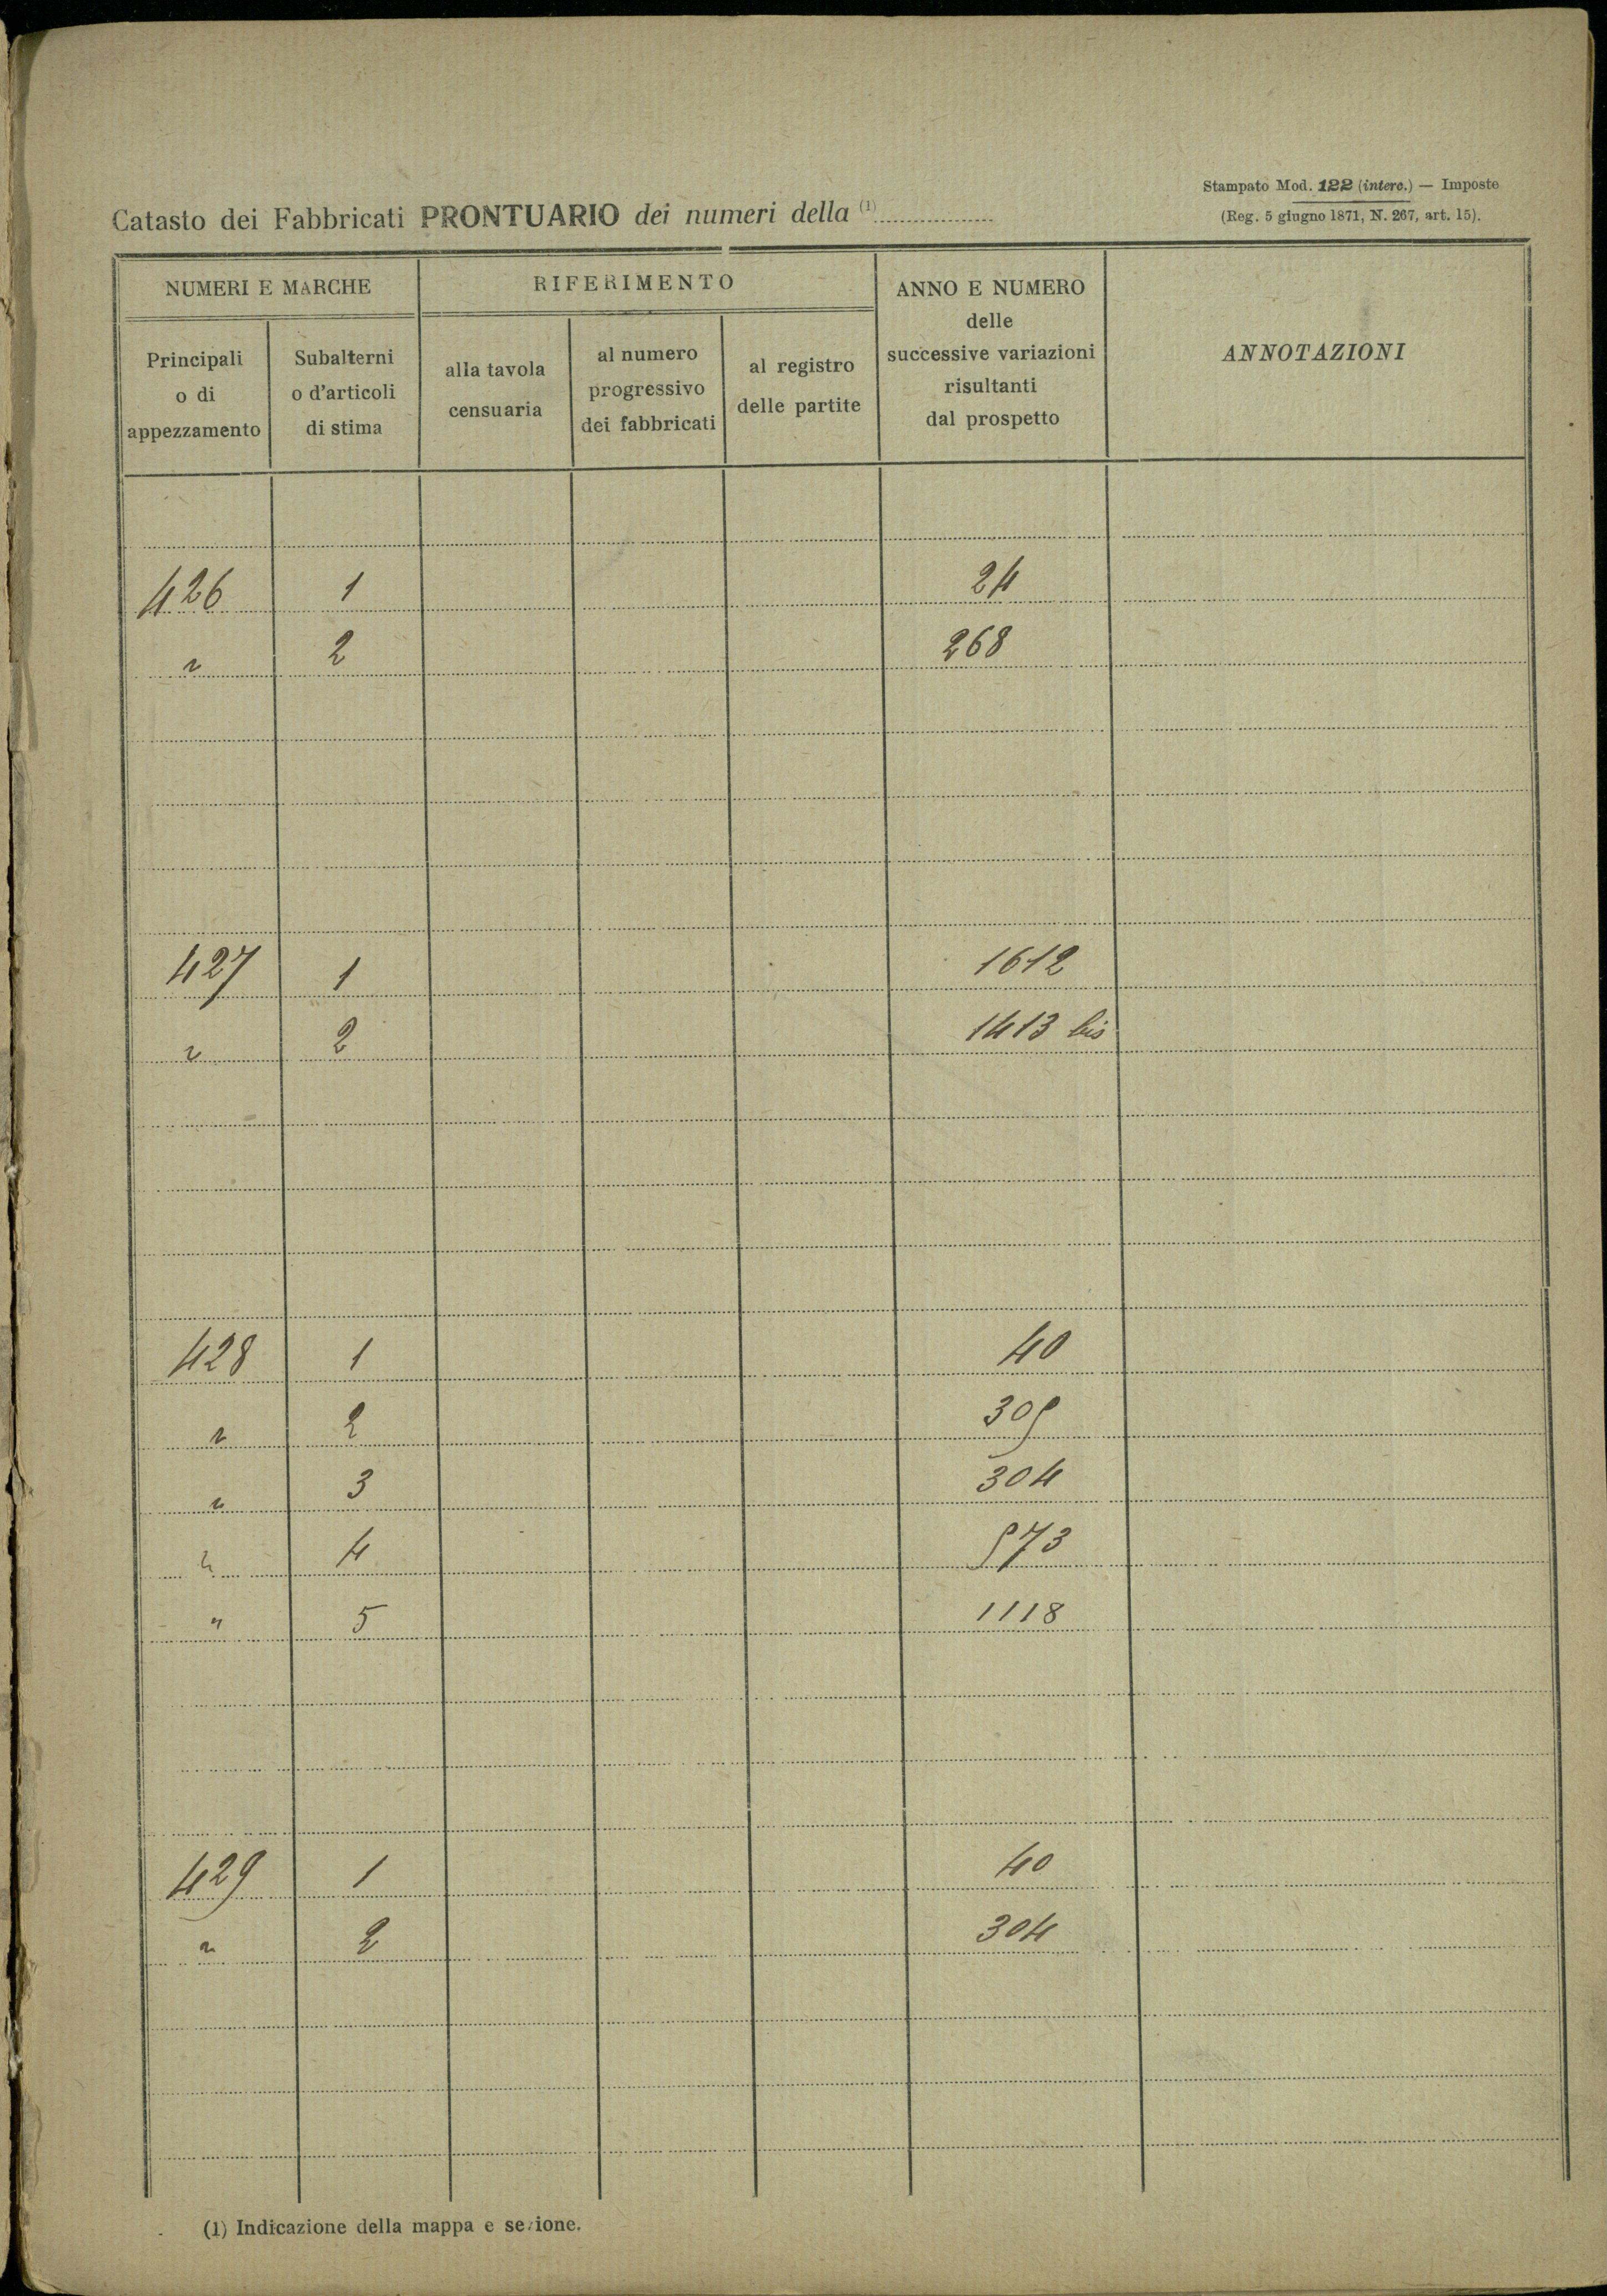 Stampato Mod. 122 (interc.) — Imposte
(Reg. 5 giugno 1871, N. 267, art. 15).
Catasto dei Fabbricati PRONTUARIO dei numeri della (1)
NUMERI E MARCHE
RIFERIMENTO
ANNO E NUMERO
delle
successive variazioni
risultanti
dal prospetto
ANNOTAZIONI
Principali
o di
appezzamento
Subalterni
o d'articoli
di stima
alla tavola
censuaria
al numero
progressivo
dei fabbricati
al registro
delle partite
426 1 24
" 2 268
427 1 1612
" 2 1413 bis
428 1 40
" 2 309
" 3 304
" 4 973
" 5 1118
429 1 40
" 2 304
(1) Indicazione della mappa e sezione.